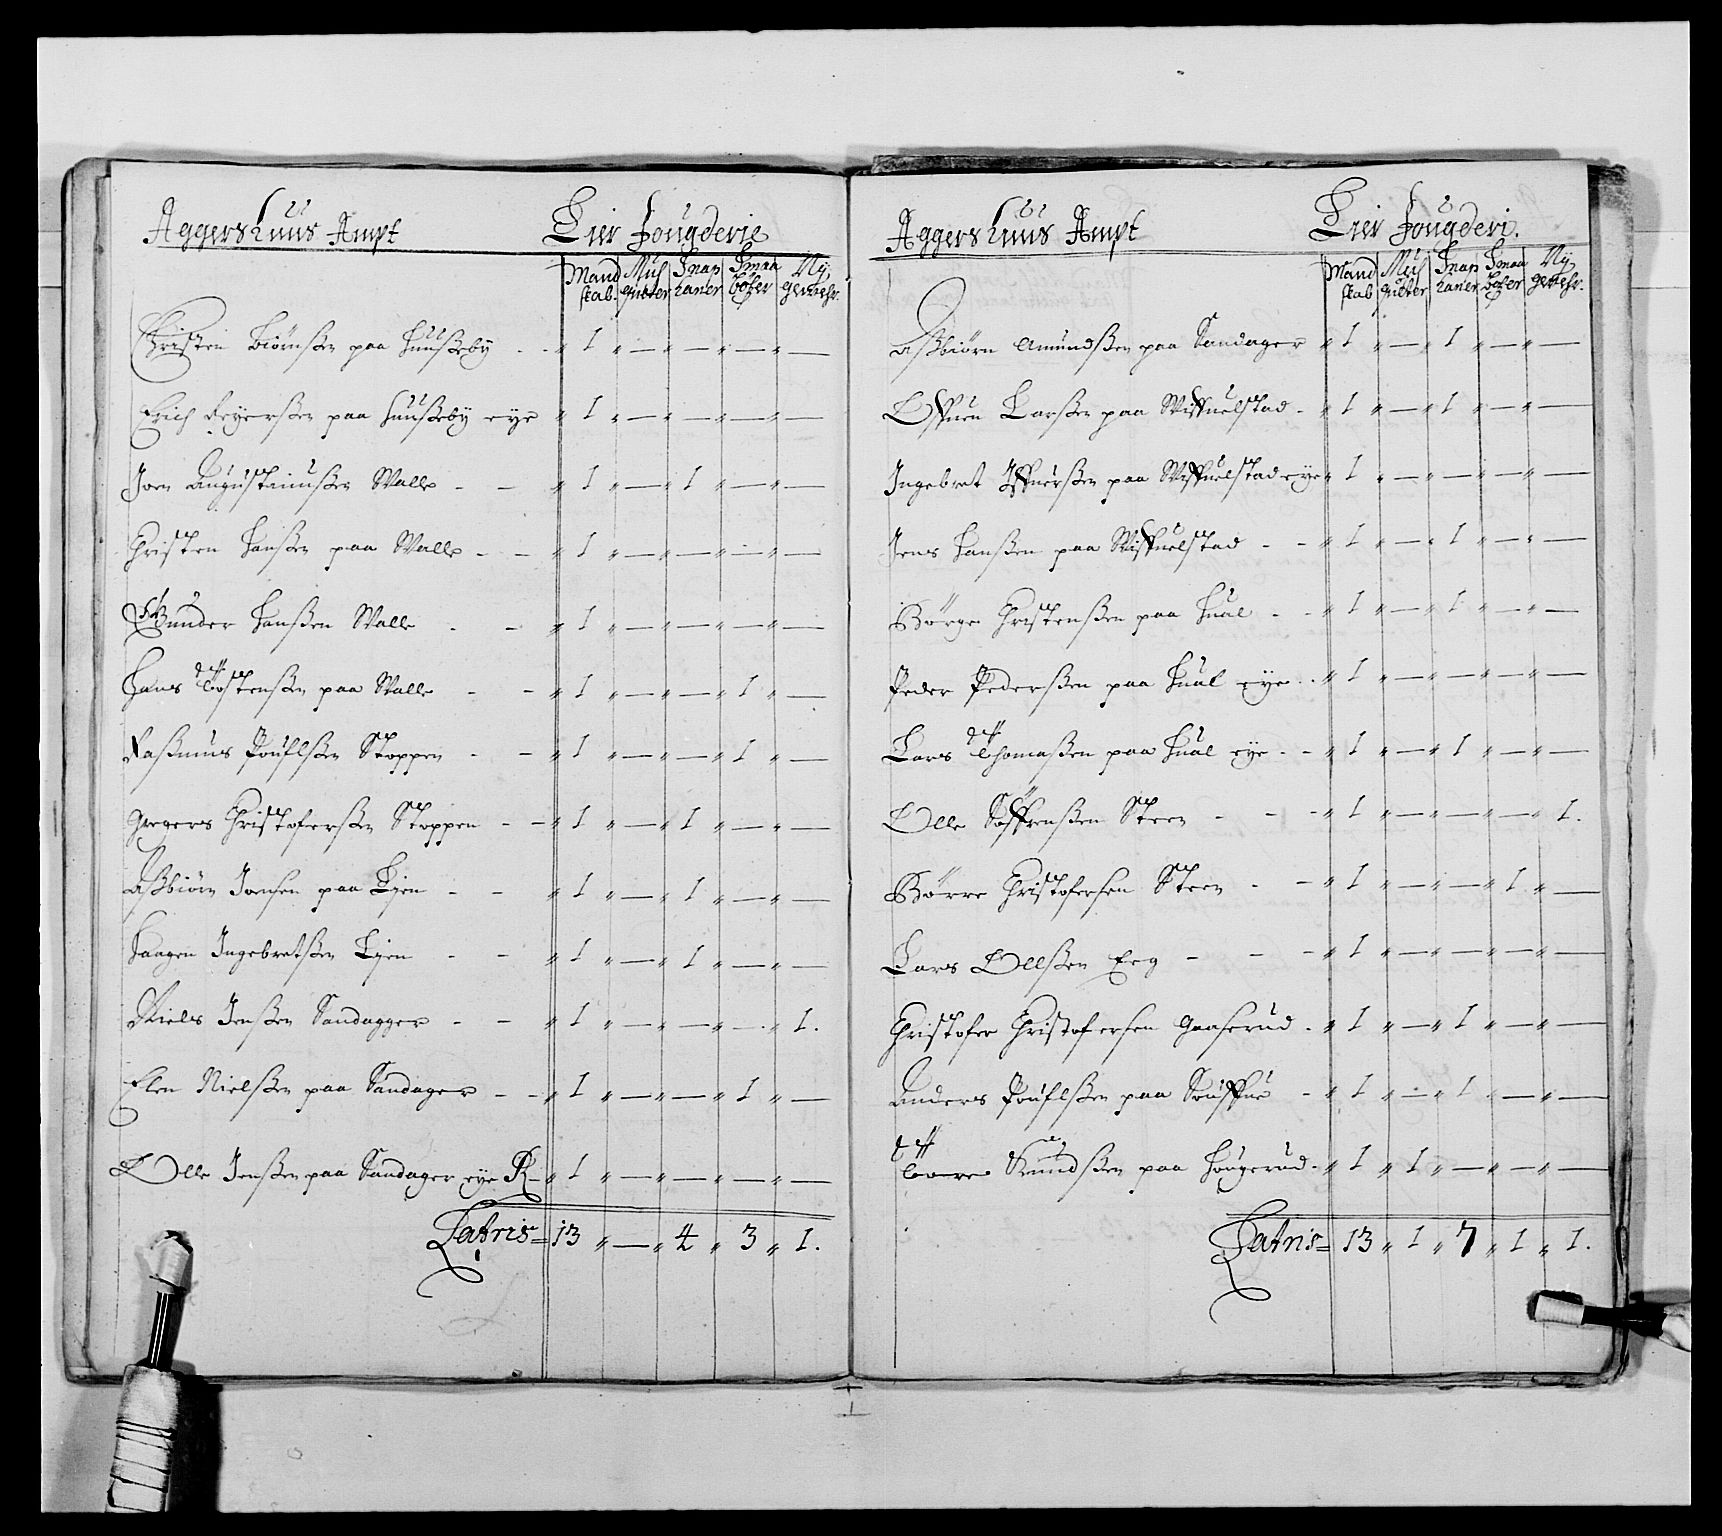 Aggershuus Ampt Lier Fougderie
Mand skab. Mus queter Snap haner Smaa bøßer Ny gewehr.
Christen Biørnßen paa Huußeby - - „ 1 „ — „ — „ — „ —
Erich Reyerßen paa Huußeby eye „ 1 „ — „ — „ — „ —
Joen Augustinußen Walle - - „ 1 „ — „ 1 „ — „ —
Christen Hanßen paa Walle - - „ 1 „ — „ — „ — „ —
Gunder Hanßen Walle - - „ 1 „ — „ — „ — „ —
Hans Tostenßen paa Walle - - „ 1 „ — „ — „ 1 „ —
Raßmus Pouflßen Stoppen - - „ 1 „ — „ — „ 1 „ —
Gregers Christoferßen Stoppen - - „ 1 „ — „ 1 „ — „ —
Aßbiørn Joensen paa Lien - - „ 1 „ — „ 1 „ — „ —
Haagen Ingebretßen Lien - - „ 1 „ — „ 1 „ — „ —
Niels Jenßen Sandagger - - „ 1 „ — „ — „ — „ 1.
Elen Nielßen paa Sandager - - „ 1 „ — „ — „ 1 „ —
Olle Jenßen paa Sandager eye R - „ 1 „ — „ — „ — „ —
Latris = 13 „ — „ 4 „ 3 „ 1.
Aggershuus Ampt Lier Fougderi.
Mand skab. Mus queter Snap haner Smaa bøßer Ny gewehr.
Aßbiørn Amundßen paa Sandager „ 1 „ — „ 1 „ — „ —
Effuen Larßen paa Wiffuelstad - „ 1 „ — „ 1 „ — „ —
Ingebret Iffuerßen paa Wiffuelstad eye „ 1 „ — „ — „ — „ —
Jens Hanßen paa Wiffuelstad - - „ 1 „ — „ 1 „ — „ —
Børge Christenßen paa Hual - - „ 1 „ — „ 1 „ — „ —
Peder Pederßen paa Hual eye - - „ 1 „ — „ — „ — „ —
Lars Thomaßen paa Hual eye - - „ 1 „ — „ 1 „ — „ —
Olle Søffrenßen Steen - - - „ 1 „ — „ — „ — „ 1.
Børre Christofersen Steen - - „ 1 „ — „ — „ 1 „ —
Lars Ollßen Eeg - - - „ 1 „ — „ — „ — „ —
Christofer Christofersen Gaaserud - „ 1 „ — „ 1 „ — „ —
Anders Pouflßen paa - „ 1 „ — „ 1 „ — „ —
Tore Knudßen paa Hougerud - „ 1 „ 1 „ — „ — „ —
Latris = 13 „ 1 „ 7 „ 1 „ 1.